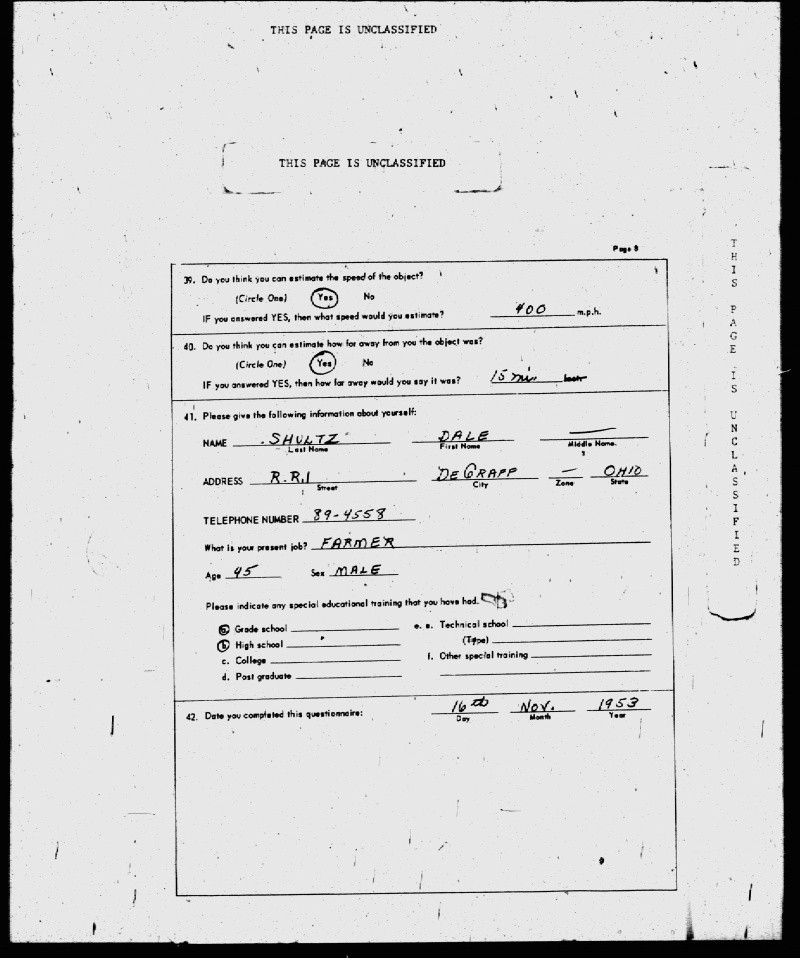 THIS PAGE IS UNCLASSIFIED
THIS PAGE IS UNCLASSIFIED
Page 8
39. Do you think you can estimate the speed of the object?
(Circle One) Yes No
IF you answered YES, then what speed would you estimate? 400 m.p.h.
40. Do you think you can estimate how far away from you the object was?
(Circle One) Yes No
IF you answered YES, then how far away would you say it was? 15 mi. feet.
41. Please give the following information about yourself:
NAME SHULTZ DALE
Last Name First Name Middle Name
ADDRESS R.R.1 DE GRAFF — OHIO
Street City Zone State
TELEPHONE NUMBER 89-4558
What is your present job? FARMER
Age 45 Sex MALE
Please indicate any special educational training that you have had.
a. Grade school e. a. Technical school
b. High school (Type)
c. College f. Other special training
d. Post graduate
42. Date you completed this questionnaire: 16th Nov. 1953
Day Month Year
THIS PAGE IS UNCLASSIFIED